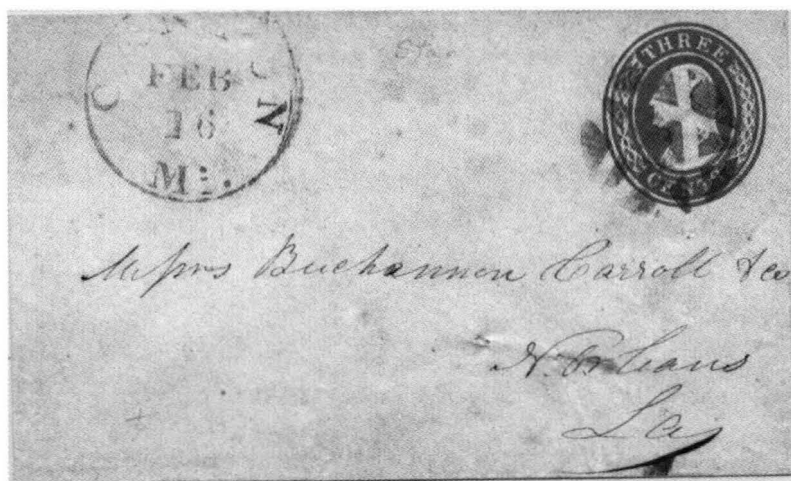 FEB
16
Mi.
THREE
CENTS
Messrs Buchannon Carroll & co
N. Orleans
La